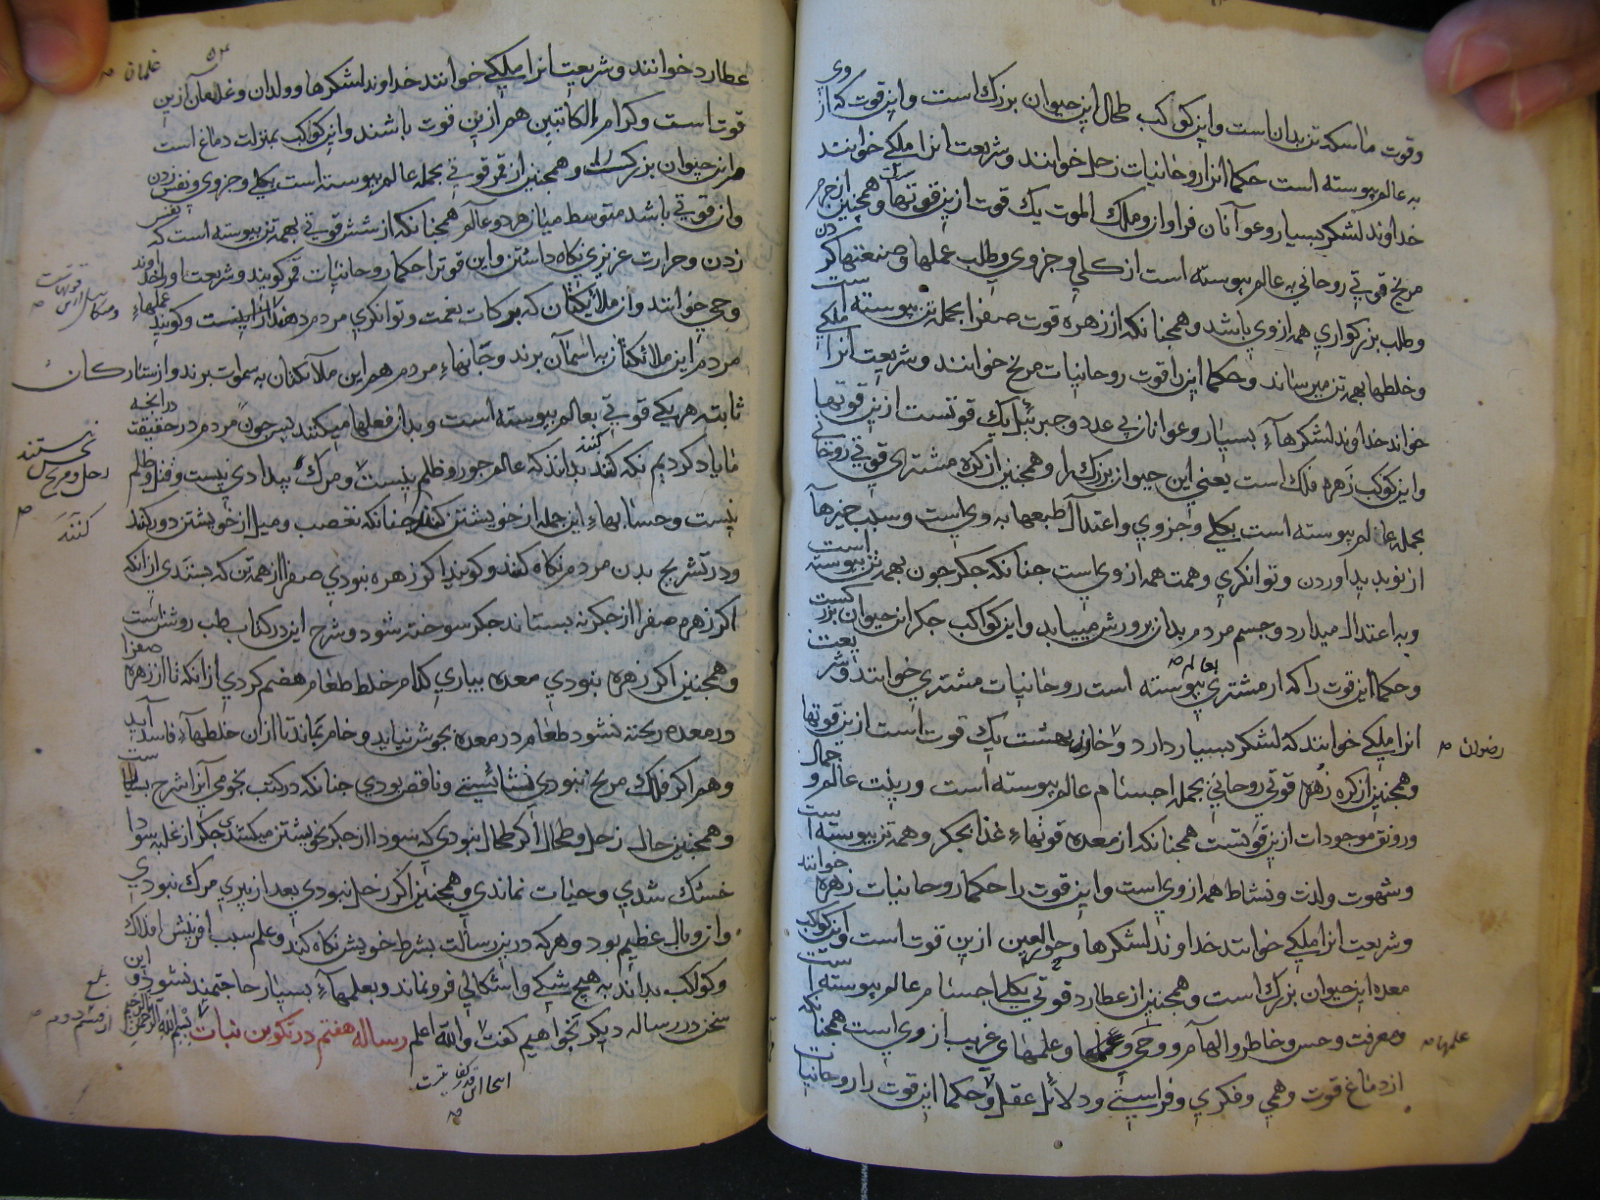 وقوت ماسکه تن بدان است و این کوکب طحال این حیوان بزرک است و این قوت که از وی
به عالم پیوسته است حکما انرا روحانیات زحل خوانند و شریعت انرا ملکی خوانند
خداوند لشکر بسیار و عوآنان فراوان و ملک الموت یک قوت از این قوتها و همچنین از جرم
مریخ قوتی روحانی به عالم پیوسته است از کلی و جزوی و طلب عملها و صنعتها کردن
و طلب بزرکواری همه از وی باشد و همچنانکه از زهره قوت صفرا بجمله تن پیوسته است
و خلطها بهمه تن میرساند و حکما این را قوت روحانیات مریخ خوانند و شریعت انرا ملکی
خواند خداوند لشکرهاء بسیار و عوانان بی عدد و جبرئیل یک قوتست از این قوتها
و این کوکب زهره فلک است یعنی این حیوان بزرک را و همچنین از کره مشتری قوتی روحانی
بجمله عالم پیوسته است بکلی و جزوی و اعتدال طبعها به وی است و سبب چیزها
از نو پدید اوردن و توانکری و همت همه از وی است چنانکه جکر چون بهمه تن پیوسته است
و به اعتدال میدارد و جسم مردم بدان پرورش مییابد و این کواکب جکر این حیوان بزرکست
و حکما این قوت را که از مشتری بعالم پیوسته است روحانیات مشتری خوانند و شریعت
انرا ملکی خوانند که لشکر بسیار دارد و خازن بهشت یک قوت است از این قوتها
رضوان
و همچنین از کره زهره قوتی روحانی بجمله اجسام عالم پیوسته است و زینت عالم و جمال
و رونق موجودات از این قوتست همچنانکه از معده قوتهاء غذا بجکر و همه تن پیوسته است
و شهوت ولذت و نشاط همه از وی است و این قوت را حکما روحانیات زهره خوانند
و شریعت انرا ملکی خوانند خداوند لشکرها و حورالعین از این قوت است و این کوکب
معده این حیوان بزرک است و همچنین از عطارد قوتی بکلی اجسام عالم پیوسته است
و معرفت و حس و خاطر و الهام و وحی و علمها و علمهای غریب از وی است همچنانکه
علمها
از دماغ قوت وهمی و فکری و فراستی و دلائل عقل و حکما این قوت را روحانیات
۵۴
عطارد خوانند و شریعت انرا ملکی خوانند خداوند لشکرها و ولدان و غلامان از این
غلمان
قوت است و کرام الکاتبین هم از این قوت باشند و این کواکب بمنزلت دماغ است
مر این حیوان بزرکست را و همچنین از قمر قوتی بجمله عالم پیوسته است بکلی و جزوی و نفس زدن
و از قوتی باشد متوسط میان هر دو عالم همچنانکه از شش قوتی بهمه تن پیوسته است که نفس
زدن و حرارت غریزی نکاه داشتن و این قوترا حکما روحانیات قمر کویند و شریعت اورا خداوند
وحی خوانند و ان ملائکتان که برکات نعمت و توانکری مردم دهند از اینست و کویند عملهاء
مردم این ملائکتان به اسمان برند و جانهاء مردم هم این ملائکتان به سموات برند و از ستارکان
ثابته هر یکی قوتی بعالم پیوسته است و بدان فعلها میکنند پس چون مردم در حقیقت درانچه
ما یاد کردیم نکه کنند بدانند که عالم جور و ظلم نیست و مرک بیدادی نیست و قتل و ظلم
نیست و حسابهاء این جمله از خویشتن کنند چنانکه تعصب و میل از خویشتن دور کنند
کنند
و در تشریح بدن مردم نکاه کنند و کویند اکر زهره نبودی صفرا از همه تن که بستدی از انکه
اکر زهره صفرا از جکر نه بستاند جکر سوخته شود و شرح این در کتاب طب روشن است
و همچنین اکر زهره نبودی معده بیاری کدام خلط طعام هضم کردی از انکه تا از زهره صفرا
در معده ریخته نشود طعام در معده بجوش نیاید و خام بماند تا از ان خلطهاء فاسد آید
و هم اکر فلک مریخ نبودی نشائیستی و ناقص بودی چنانکه در کتب نجومی آنرا شرح بسیار است
و همچنین حال زحل و طحال اکر طحال نبودی که سودا از جکر بخویشتن میکشندی جکر از غلبه سودا
خشک شدی و حیات نماندی و همچنین اکر زحل نبودی بعد از پیری مرک نبودی
و از و بال عظیم بود و هر که در این رسالت بشرط خویش نکاه کند و علم سبب افرینش افلاک
و کواکب بداند به هیچ شکی و اشکالی فرو نماند و بعلمهاء بسیار حاجتمند نشود و این
سخن در رساله دیکر بخواهیم کفت والله اعلم رساله هفتم در تکوین نبات بسم الله الرحمن الرحیم